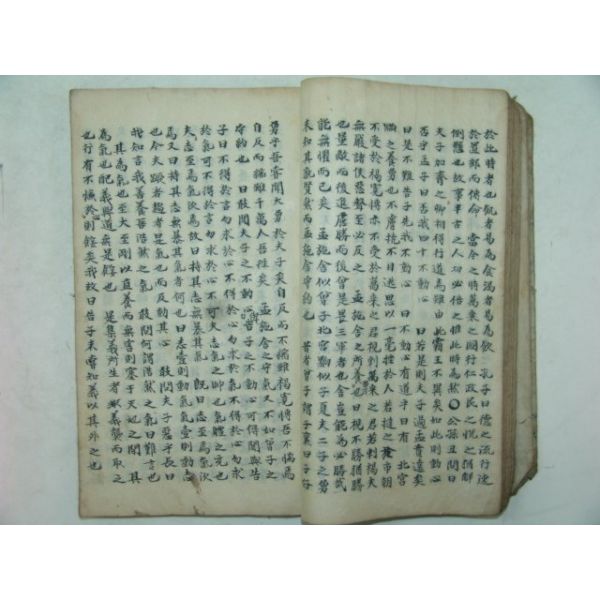 於此時者也飢者易爲食渴者易爲飮 孔子曰德之流行速
於置郵而傳命 當今之時萬乘之國行仁政民之悅之猶解
倒懸也故事半古之人功必倍之惟此時爲然○公孫丑問曰
夫子加齊之卿相得行道焉雖由此霸王不異矣如此則動心
否乎孟子曰否我四十不動心 曰若是則夫子過孟賁遠矣
曰是不難告子先我不動心 曰不動心有道乎曰有 北宮
黝之養勇也不膚撓不目逃思以一毫挫於人若撻之於市朝
不受於褐寬博亦不受於萬乘之君視刺萬乘之君若刺褐夫
無嚴諸侯惡聲至必反之 孟施舍之所養勇也曰視不勝猶勝
也量敵而後進慮勝而後會是畏三軍者也舍豈能爲必勝哉
能無懼而已矣 孟施舍似曾子北宮黝似子夏夫二子之勇
未知其孰賢然而孟施舍守約也 昔者曾子謂子襄曰子好
勇乎吾嘗聞大勇於夫子矣自反而不縮雖褐寬博吾不惴焉
自反而縮雖千萬人吾往矣 孟施舍之守氣又不如曾子之
守約也 曰敢問夫子之不動心與告子之不動心可得聞與告
子曰不得於言勿求於心不得於心勿求於氣不得於心勿求
於氣可不得於言勿求於心不可夫志氣之帥也氣體之充也
夫志至焉氣次焉故曰持其志無暴其氣 旣曰志至焉氣次
焉又曰持其志無暴其氣者何也曰志壹則動氣氣壹則動志
也今夫蹶者趨者是氣也而反動其心 敢問夫子惡乎長曰
我知言我善養吾浩然之氣 敢問何謂浩然之氣曰難言也
其爲氣也至大至剛以直養而無害則塞于天地之間 其
爲氣也配義與道無是餒也 是集義所生者非義襲而取之
也行有不慊於心則餒矣我故曰告子未嘗知義以其外之也